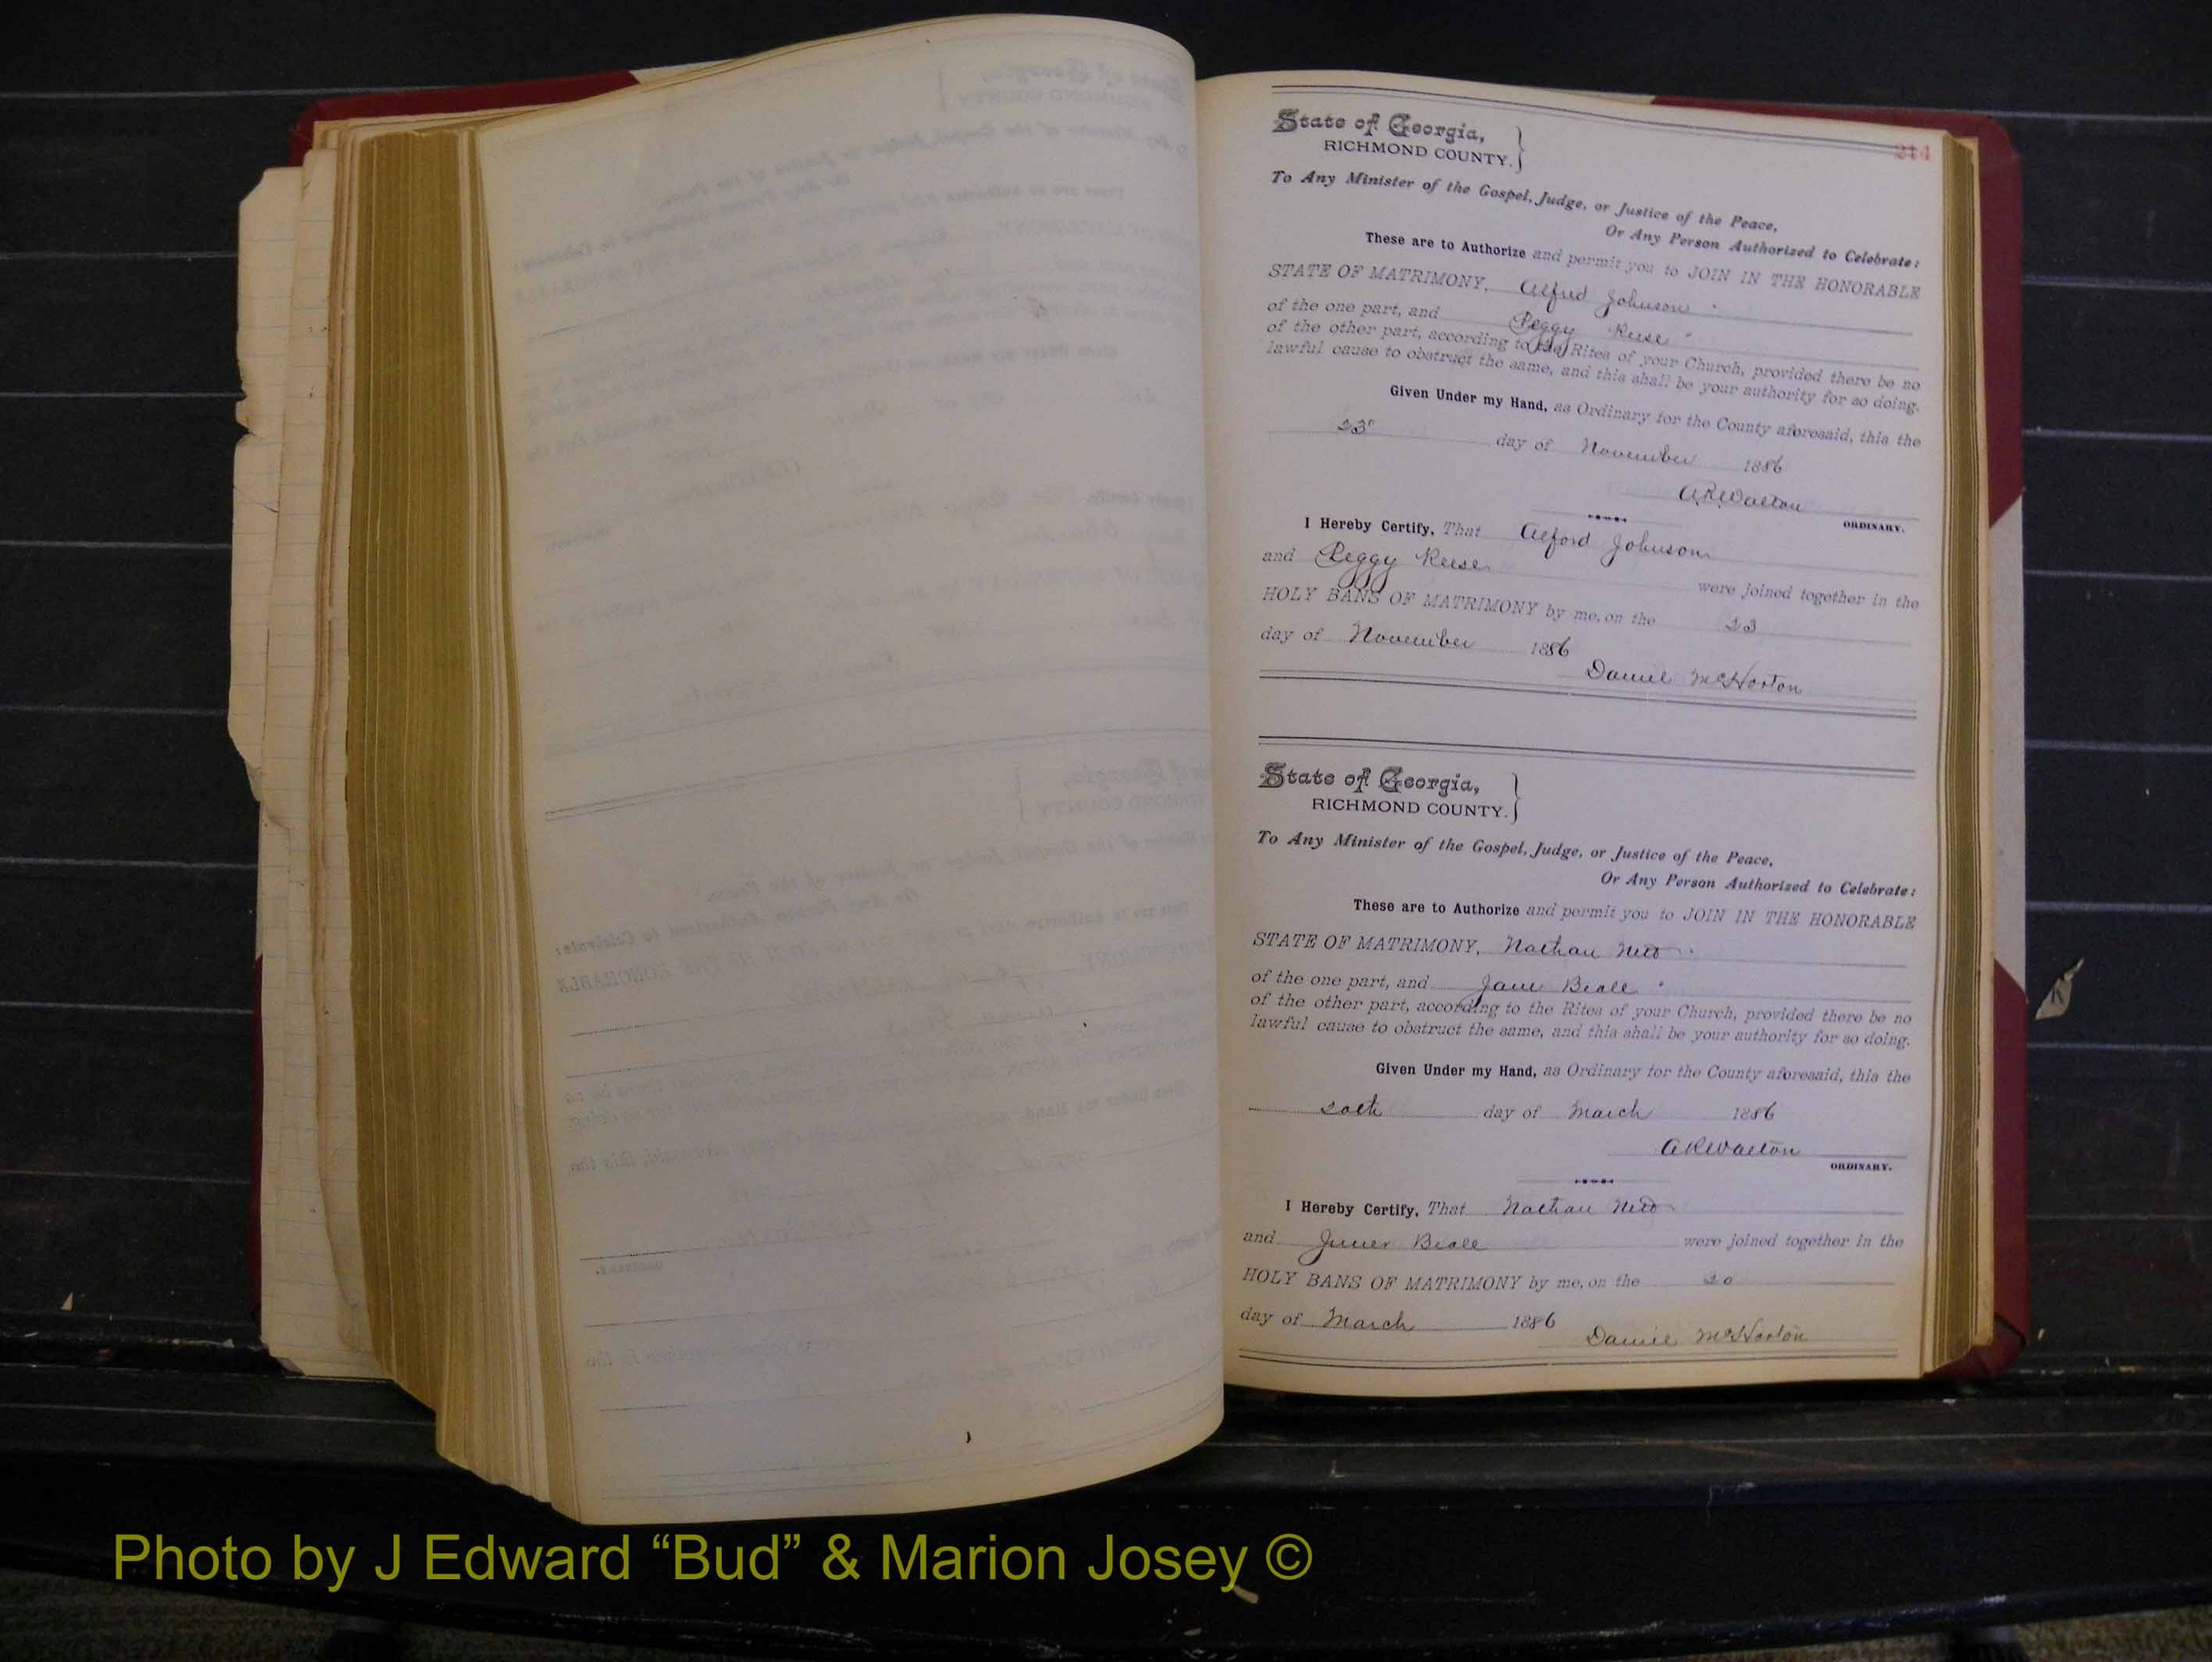 214
State of Georgia,
RICHMOND COUNTY.
To Any Minister of the Gospel, Judge, or Justice of the Peace,
Or Any Person Authorized to Celebrate:
These are to Authorize and permit you to JOIN IN THE HONORABLE
STATE OF MATRIMONY, Alfred Johnson
of the one part, and Peggy Reese
of the other part, according to the Rites of your Church, provided there be no
lawful cause to obstruct the same, and this shall be your authority for so doing.
Given Under my Hand, as Ordinary for the County aforesaid, this the
23" day of November 1886
A R Walton
ORDINARY.
I Hereby Certify, That Alford Johnson
and Peggy Reese were joined together in the
HOLY BANS OF MATRIMONY by me, on the 23
day of November 1886
Daniel McHorton
State of Georgia,
RICHMOND COUNTY.
To Any Minister of the Gospel, Judge, or Justice of the Peace,
Or Any Person Authorized to Celebrate:
These are to Authorize and permit you to JOIN IN THE HONORABLE
STATE OF MATRIMONY, Nathan
of the one part, and Jane Beale
of the other part, according to the Rites of your Church, provided there be no
lawful cause to obstruct the same, and this shall be your authority for so doing.
Given Under my Hand, as Ordinary for the County aforesaid, this the
20th day of March 1886
A R Walton
ORDINARY.
I Hereby Certify, That Nathan
and Beale were joined together in the
HOLY BANS OF MATRIMONY by me, on the 20
day of March 1886
Daniel McHorton
Photo by J Edward “Bud” & Marion Josey ©